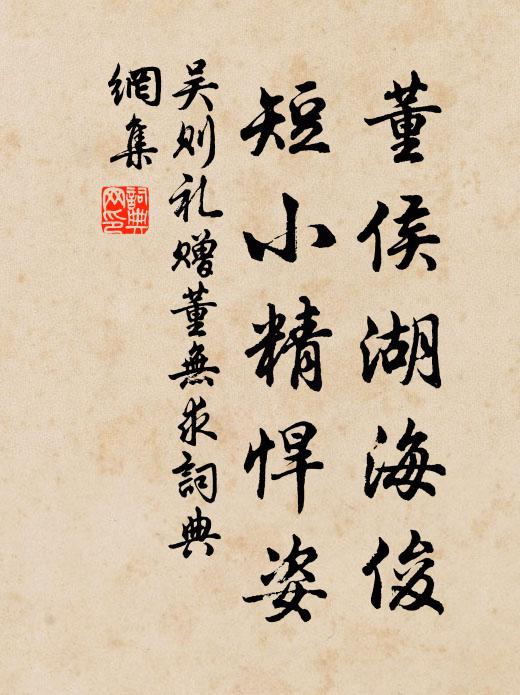 董侯湖海俊
短小精悍姿
吴则礼赠董無求詞典
網集
詞典
网印